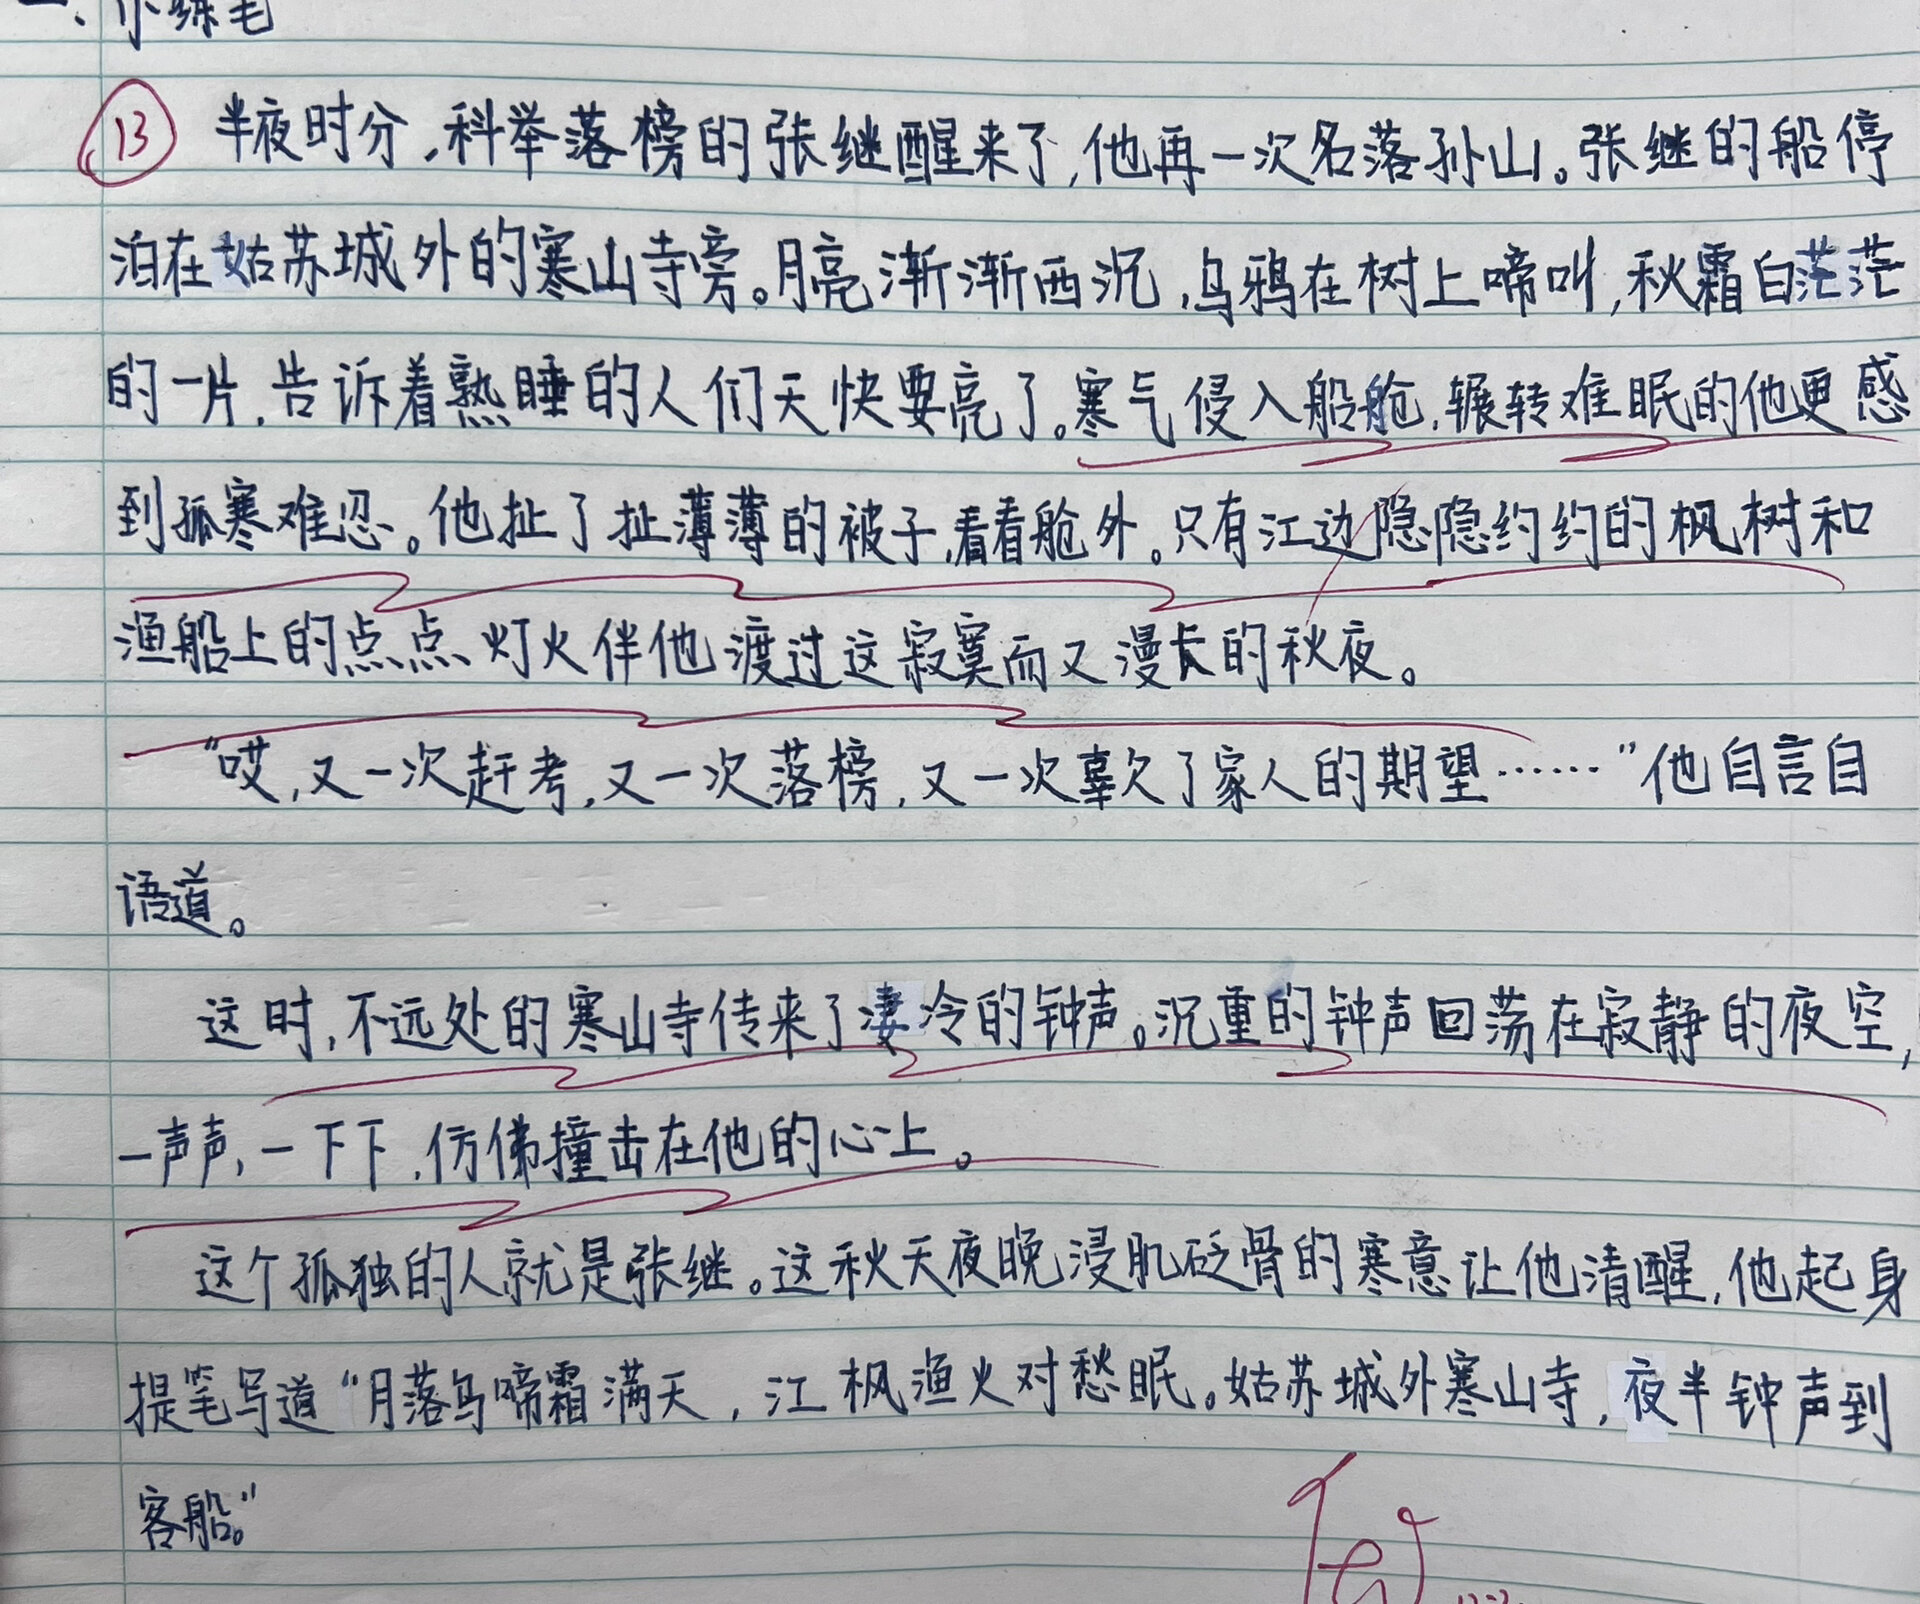 一、小练笔
13 半夜时分,科举落榜的张继醒来了,他再一次名落孙山。张继的船停
泊在姑苏城外的寒山寺旁。月亮渐渐西沉,乌鸦在树上啼叫,秋霜白茫茫
的一片,告诉着熟睡的人们天快要亮了。寒气侵入船舱,辗转难眠的他更感
到孤寒难忍。他扯了扯薄薄的被子,看看舱外。只有江边隐隐约约的枫树和
渔船上的点点灯火伴他渡过这寂寞而又漫长的秋夜。
“哎,又一次赶考,又一次落榜,又一次辜欠了家人的期望……”他自言自
语道。
这时,不远处的寒山寺传来了凄冷的钟声。沉重的钟声回荡在寂静的夜空,
一声声,一下下,仿佛撞击在他的心上。
这个孤独的人就是张继。这秋天夜晚浸肌砭骨的寒意让他清醒,他起身
提笔写道“月落乌啼霜满天,江枫渔火对愁眠。姑苏城外寒山寺,夜半钟声到
客船。”